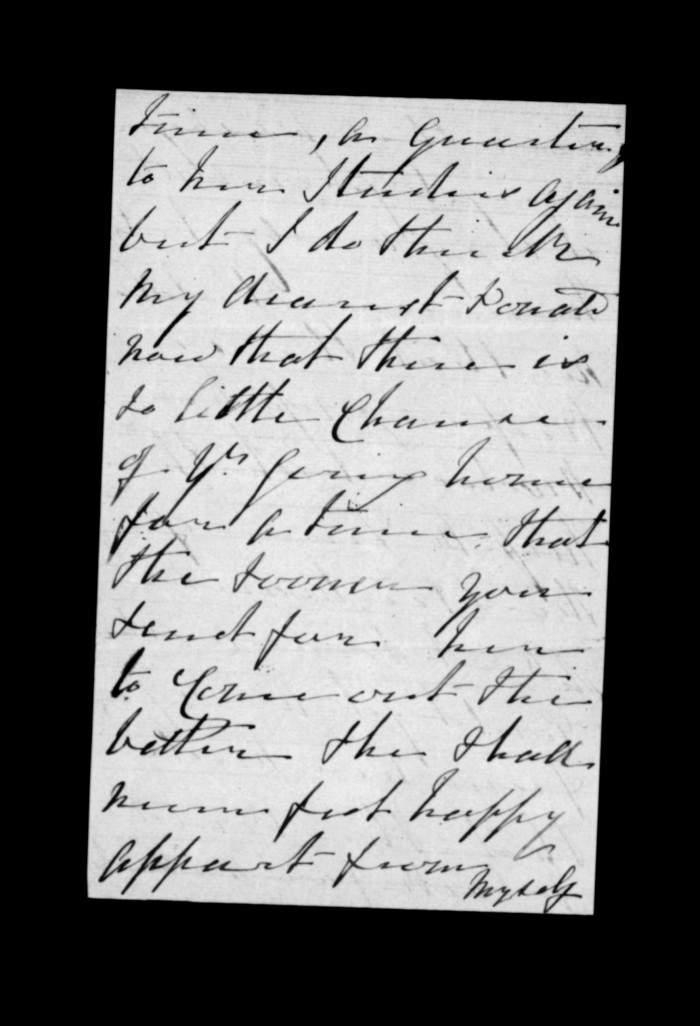 time, a quarter
to her Studies again
but I do think
my dearest Donald
now that there is
so little Chance
of Yr going home
for a time that
the sooner you
send for her
to Come out the
better she shall
never feel happy
appart from
Myself